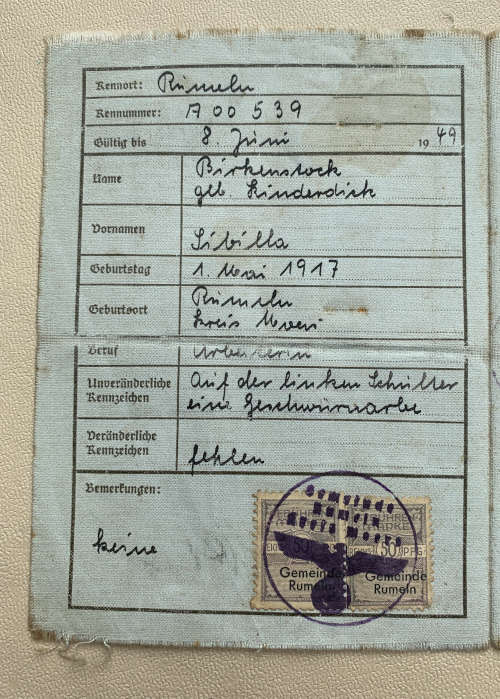 Kennort: Rumeln
Kennummer: A 00539
Gültig bis 8. Juni 1949
Name Birkenstock
geb. Kinderdick
Vornamen
Sibilla
Geburtstag 1. Mai 1917
Geburtsort Rumeln
Kreis Moers
Beruf Arbeiterin
Unveränderliche Kennzeichen Auf der linken Schulter
eine Geschwürnarbe
Veränderliche Kennzeichen fehlen
Bemerkungen:
keine
Gemeinde
Rumeln
Kreis Moers
50 50
Gemeinde Gemeinde
Rumeln Rumeln